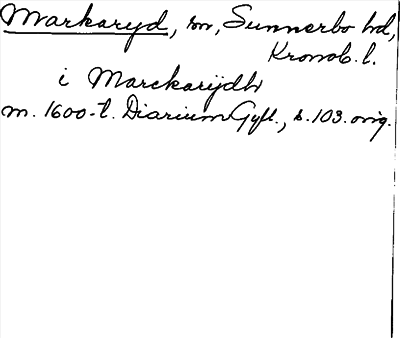 Markaryd, sn, Sunnerbo hd,
Kronob. l.
i Marckarijdh
m. 1600-t. Diarium Gyll., s. 103. orig.